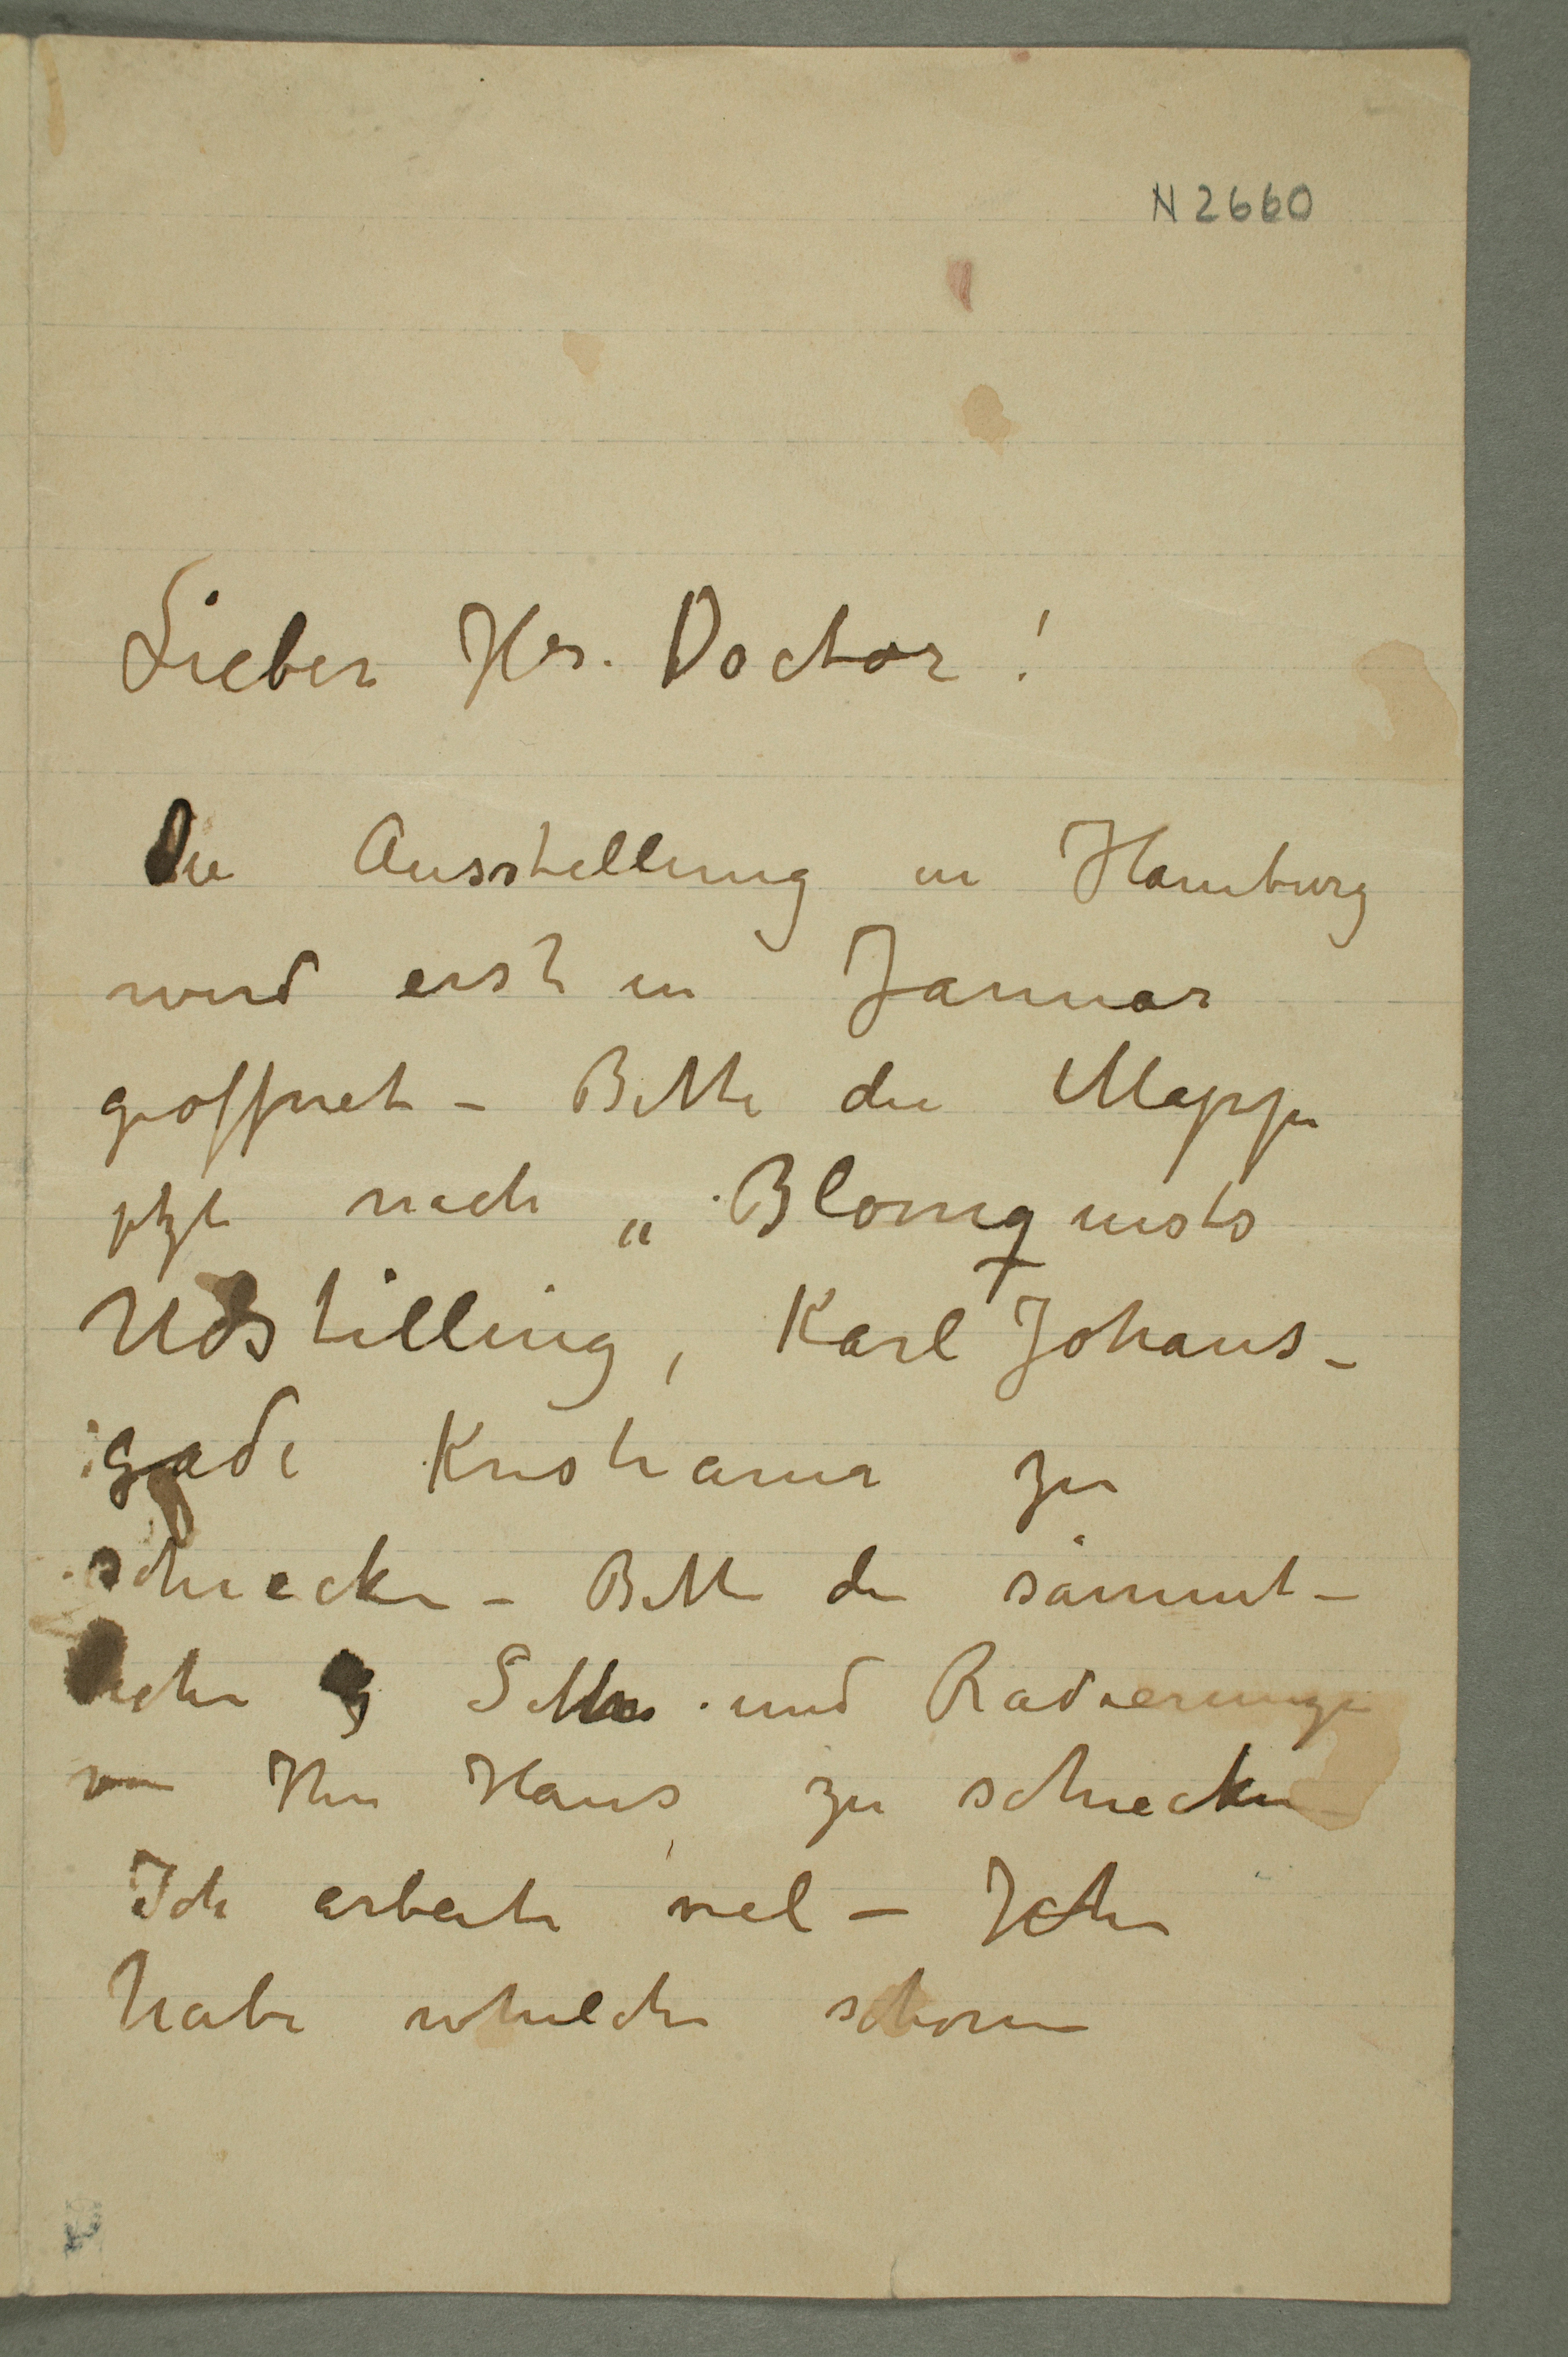 N 2660
Lieber Hr. Doctor!
Die Ausstellung in Hamburg
wird erst in Januar
geöffnet – Bitte die Mappe
jetzt nach „Blomquists
Udstilling, Karl Johans-
gade Kristiania zu
schiecken – Bitte die sämmt-
lichen und Radierungen
von Ihn Haus zu schiecken
Ich arbeite viel – Ich
habe schon